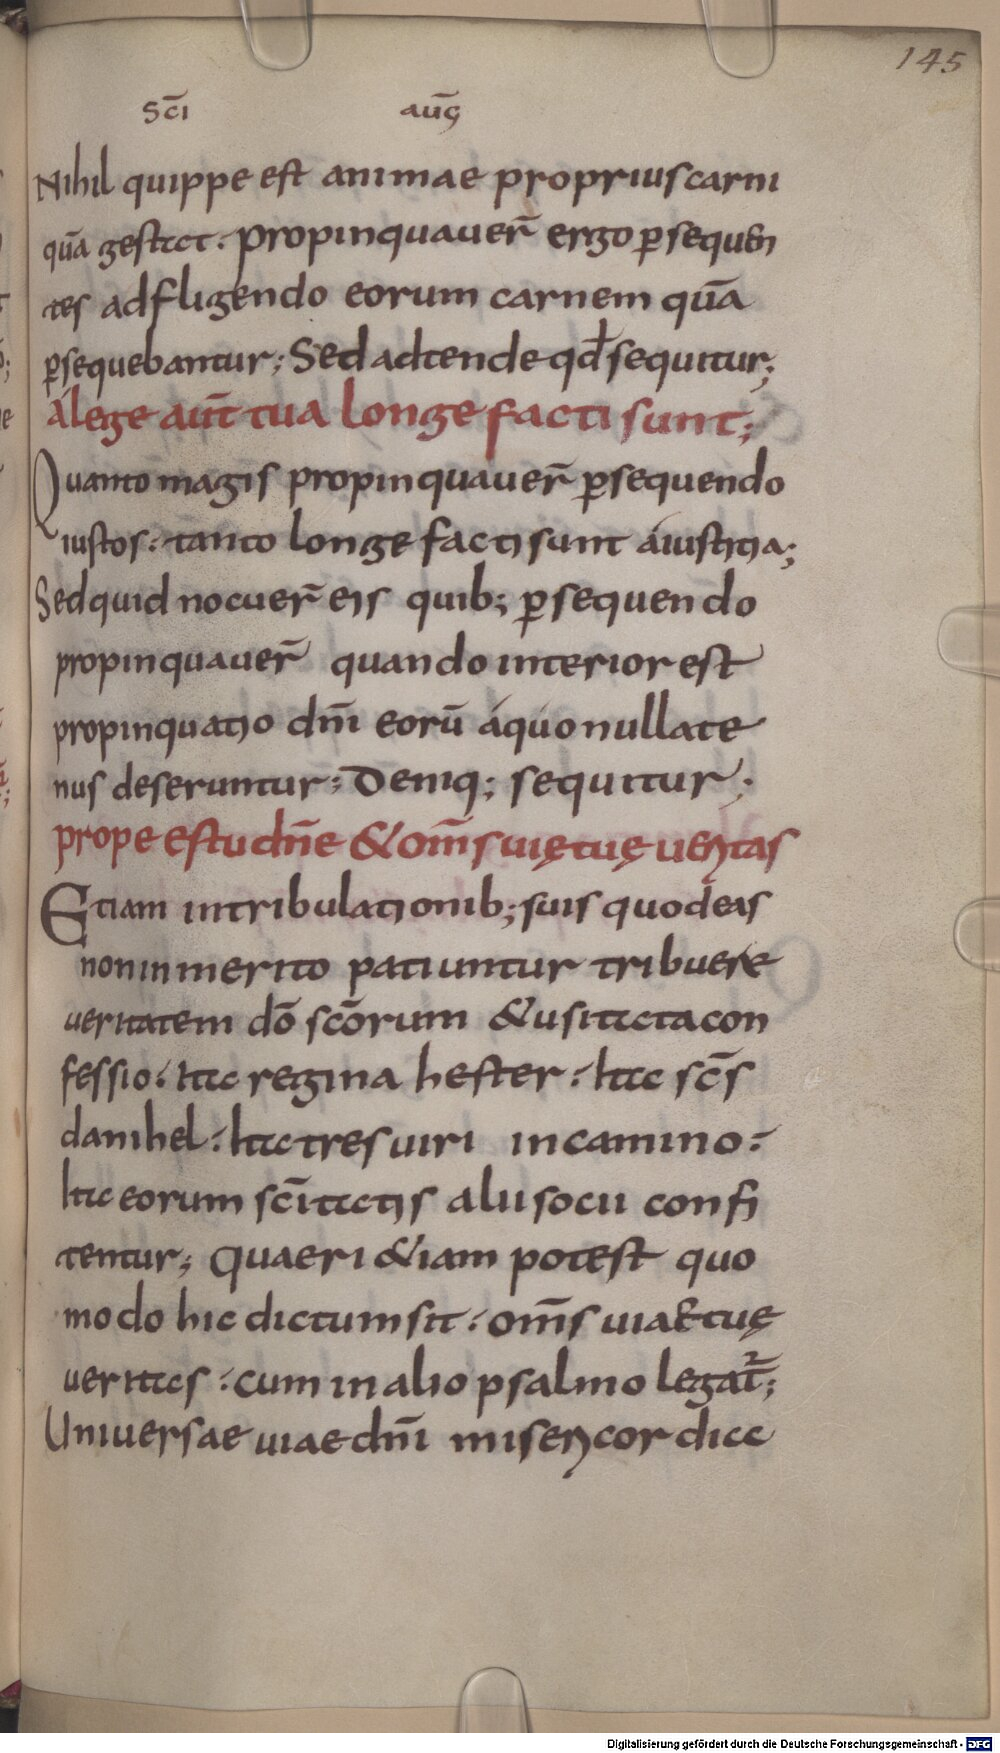 145
sc̄i auḡ
Nihil quippe est animae proprius carni
quā gestat. propinquauer̄ ergo ꝑsequen
tes adfligendo eorum carnem quā
ꝑsequebantur; Sed adtende qđ sequitur;
á lege aut̄ tua longe facti sunt;
Quanto magis propinquauer̄ ꝑsequendo
iustos. tanto longe facti sunt á iustitia;
Sed quid nocuer̄ eis quib; ꝑsequendo
propinquauer̄ quando interior est
propinquatio dn̄i eorū á quo nullate
nus deseruntur; Deniq; sequitur;
prope es tu dn̄e & om̄s uię tuę ueritas
Etiam in tribulationib; suis quod eas
non inmerito patiuntur tribuere
ueritatem dō scōrum & usitata con
fessio. hac regina hester. hac sc̄s
danihel. hac tres uiri in camino.
hac eorum sc̄itatis alii socii confi
tentur; Quaeri &iam potest quo
modo hic dictum sit. om̄s uiae tuę
ueritas. cum in alio psalmo legat̄;
Uniuersae uiae dn̄i misericordia
Digitalisierung gefördert durch die Deutsche Forschungsgemeinschaft - DFG